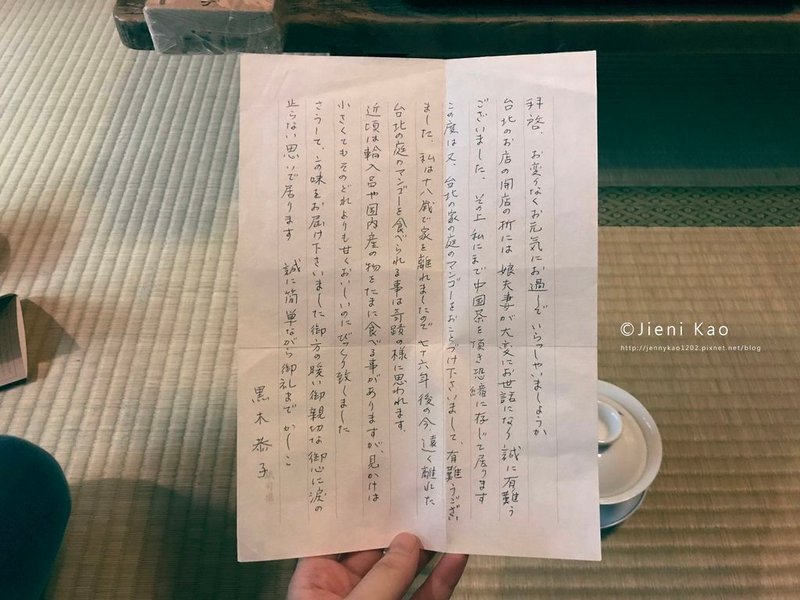 拝啓、お変りなくお元気にお過しでいらっしゃいましょうか
台北のお店の開店の折には娘夫妻が大変にお世話になり誠に有難う
ございました、その上私にまで中国茶を頂き恐縮に存じて居ります
この度は又、台北の家の庭のマンゴーをおことづけ下さいまして、有難うござい
ました、私は十八歳で家を離れましたので七十六年後の今、遠く離れた
台北の庭のマンゴーを食べられる事は奇蹟の様に思われます、
近頃は輸入品や国内産の物をたまに食べる事がありますが、見かけは
小さくてもそのどれよりも甘くおいしいのにびっくり致しました
さうして、この味をお届け下さいました御方の暖い御親切な御心に涙の
止らない思いで居ります 誠に簡単ながら御礼まで かしこ
黒木恭子
©Jieni Kao
http://jennykao1202.pixnet.net/blog